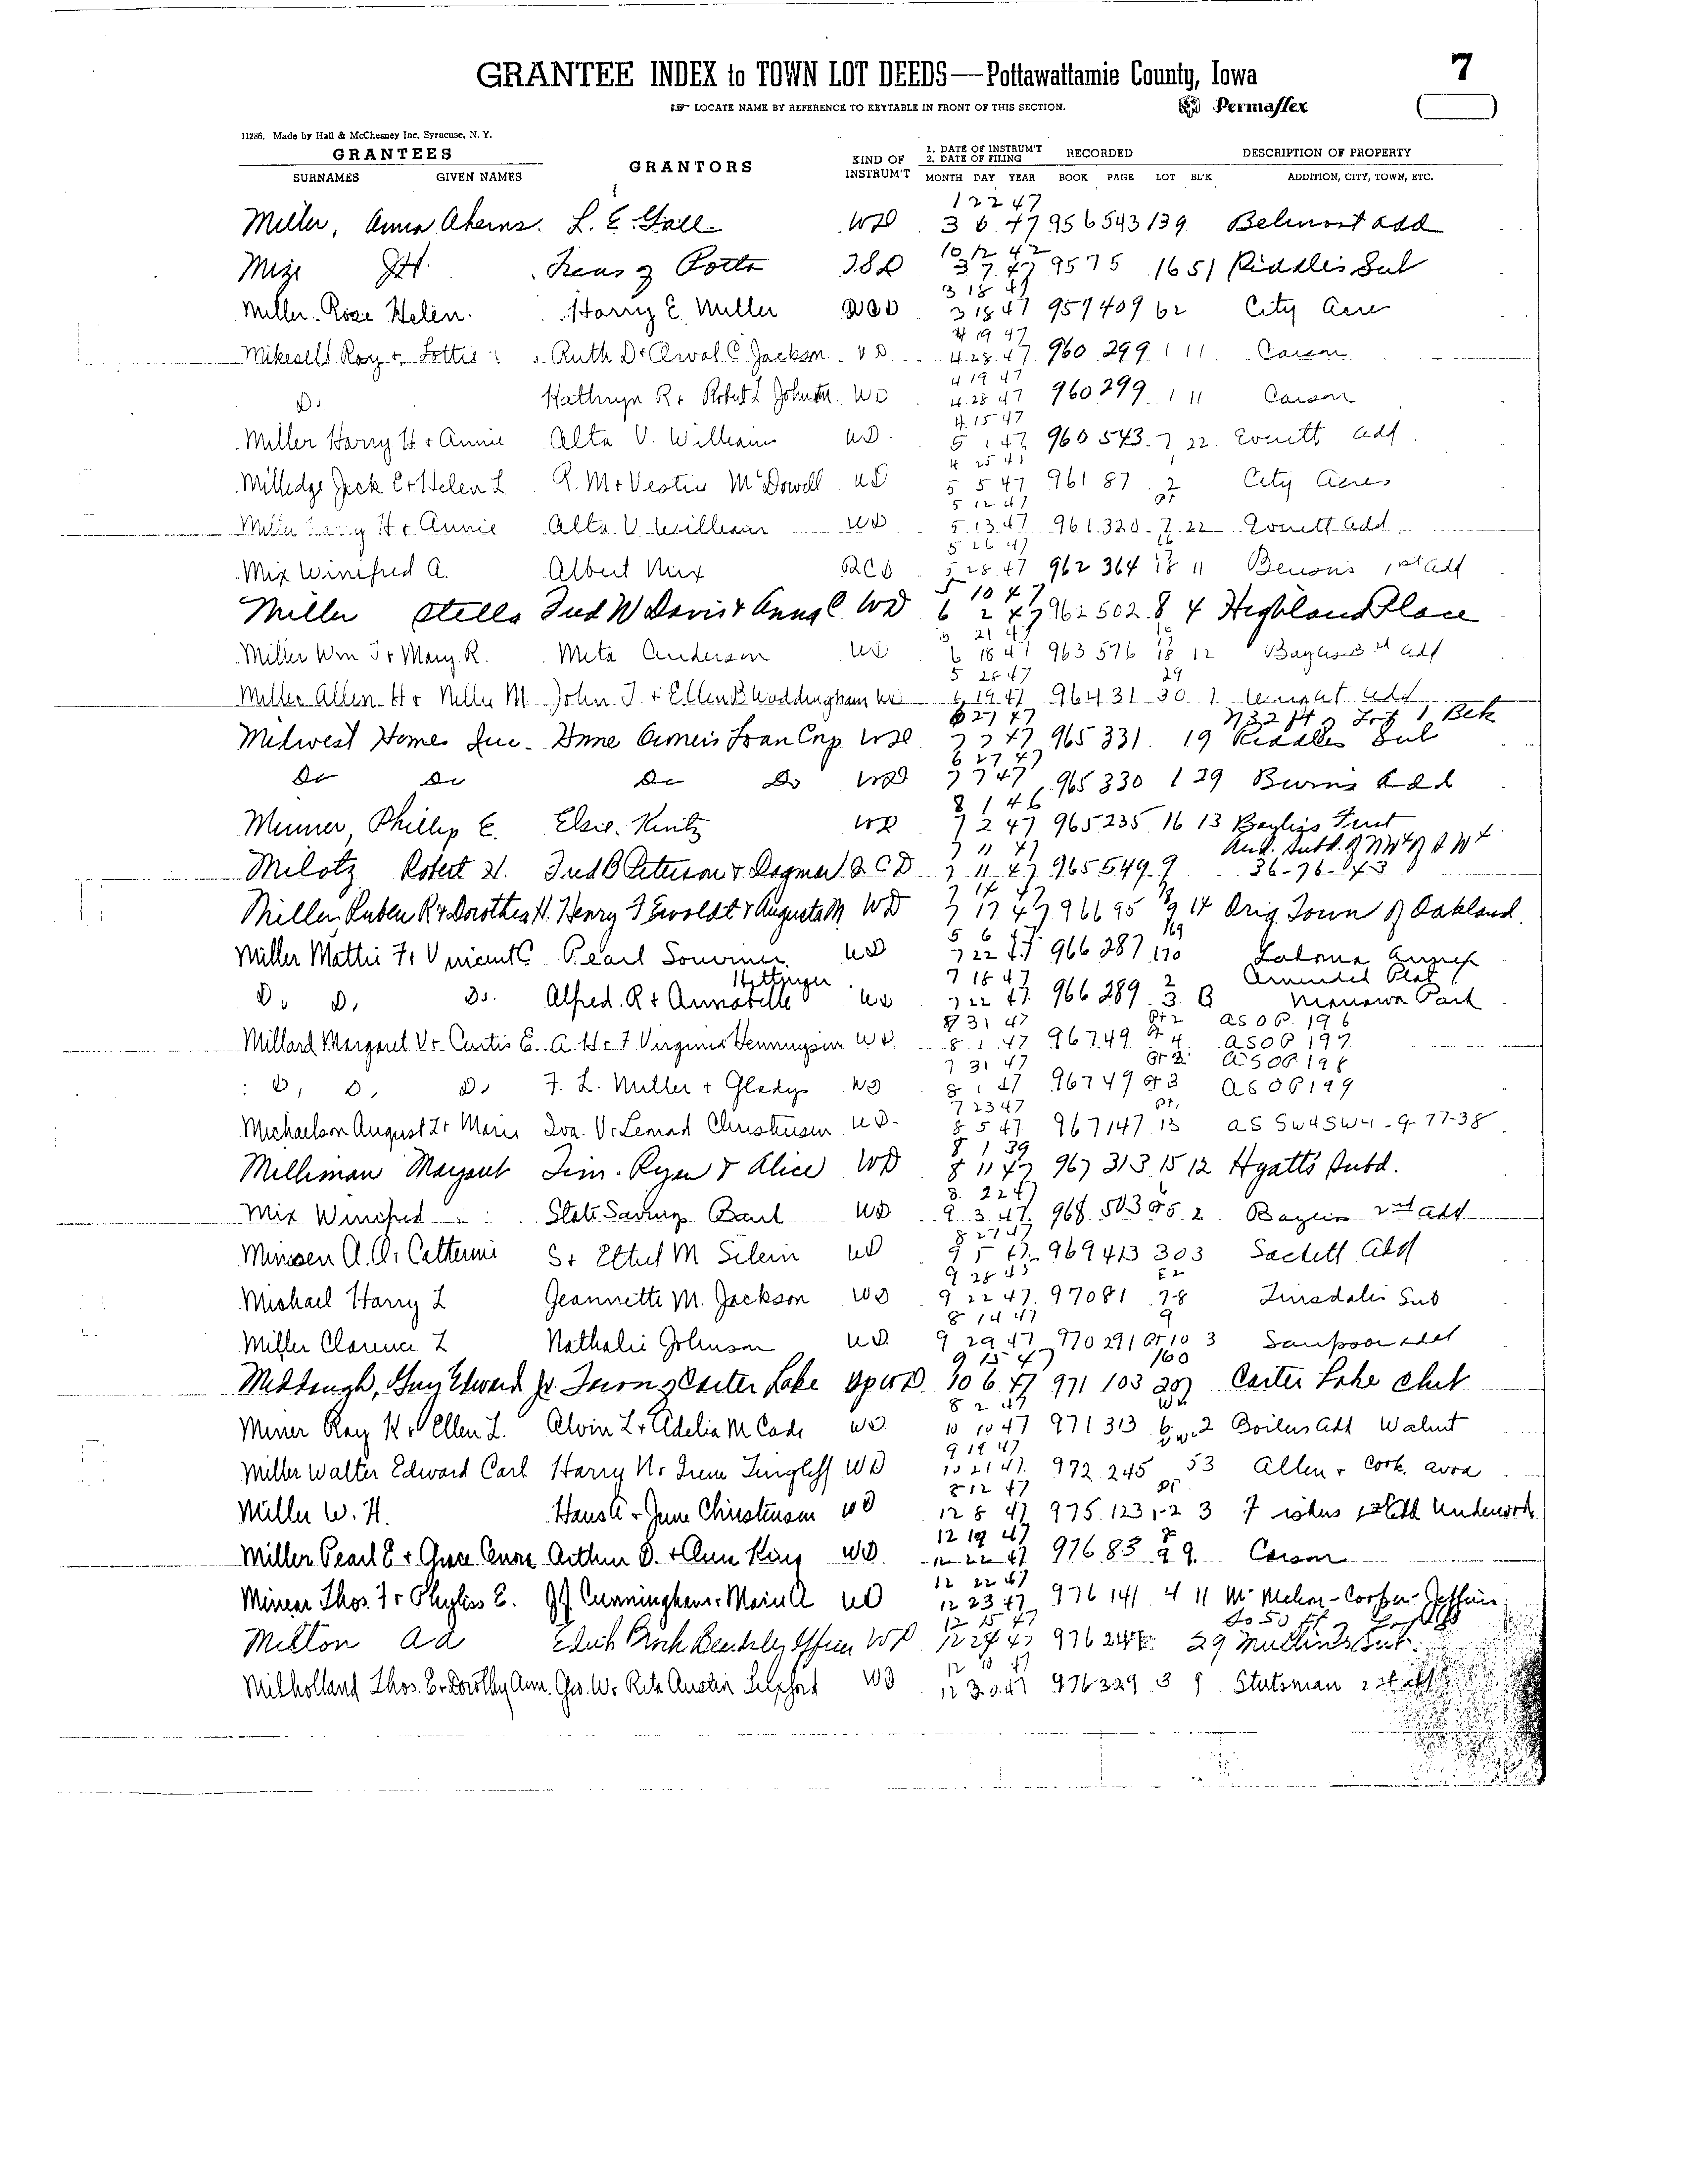 7
GRANTEE INDEX to TOWN LOT DEEDS—Pottawattamie County, Iowa
LOCATE NAME BY REFERENCE TO KEYTABLE IN FRONT OF THIS SECTION. Permaflex
11286. Made by Hall & McChesney Inc, Syracuse, N. Y.
GRANTEES GRANTORS KIND OF INSTRUM'T 1. DATE OF INSTRUM'T 2. DATE OF FILING RECORDED DESCRIPTION OF PROPERTY
SURNAMES GIVEN NAMES MONTH DAY YEAR BOOK PAGE LOT BL'K ADDITION, CITY, TOWN, ETC.
1 22 47
Miller, Anna Aherns. L. E. Gall WD 3 6 47 956 543 139 Belmont Add
10 12 42
Mize J.H. Treas of Potta 3 7 47 957 5 16 51 Riddles Sub
3 18 47
Miller Rose Helen. Harry E. Miller QCD 3 18 47 957 409 62 City Acre
4 19 47
Mikesell Roy + Lottie Ruth D + C Jackson WD 4 28 47 960 299 1 11 Carson
4 19 47
Do. Kathryn R + Robert L Johnson WD 4 28 47 960 299 1 11 Carson
4 15 47
Miller Harry H + Annie Alta V. William WD 5 1 47 960 543 7 22 Everett Add
4 25 47
Milledge Jack C + Helen L R. M + Vestie McDowell WD 5 5 47 961 87 2 City Acres
5 12 47 Pt
Miller Harry H + Annie Alta V William WD 5 13 47 961 320 7 22 Everett Add
5 26 47 16
Mix Winifred A. Albert Mix QCD 5 28 47 962 364 17 18 11 Benson's 1st Add
5 10 47
Miller Stella Fred W Davis & Anna C WD 6 2 47 962 502 8 4 Highland Place
21 47 16
Miller Wm J + Mary R. Meta Anderson WD 6 18 47 963 576 17 18 12 Bayliss 3rd Add
5 28 47 29
Miller Allen H + Nellie M John J. + Ellen B Waddingham WD 6 19 47 964 31 30 1 Wright Add
6 27 47 N32 ft of Lot 1 Blk
Midwest Homes Inc. Home Owners Loan Corp WD 7 7 47 965 331 19 Riddles Sub
6 27 47
Do Do Do Do WD 7 7 47 965 330 1 29 Burns Add
8 1 46
Phillip E. Elsie Kintz WD 7 2 47 965 235 16 13 Bayliss First
7 11 47 Aud. Subd. of NW4 of
Milotz Robert H. Fred B Peterson & Dagmar QCD 7 11 47 965 549 9 36-76-43
7 14 47
Miller, Ruben R & Dorothea H. Henry F Ewoldt & Augusta M WD 7 17 47 966 95 9 14 Orig Town of Oakland
5 6 47 169
Miller Mattie F + Vincent C Pearl WD 7 22 47 966 287 170 Lakoma Annex
Hettinger 7 18 47 2 Amended Plat
Do Do Do Alfred R + Annabelle WD 7 22 47 966 289 3 B Manawa Park
7 31 47 Pt 2 AS OP 196
Millard Margaret V + Curtis E. A. H + F Virginia Henningsen WD 8 1 47 967 49 Pt 4 AS OP 197
7 31 47 Pt 2 AS OP 198
Do Do Do F. L. Miller + Gladys WD 8 1 47 967 49 Pt 3 AS OP 199
7 23 47 Pt.
Michaelson August L + Marie Iva V + Lenard Christensen WD 8 5 47 967 147 13 AS SW4SW4-9-77-38
8 1 39
Milliman Margaret Jim Ryan & Alice WD 8 11 47 967 313 15 12 Hyatt's Subd.
8 22 47 6
Mix Winifred State Savings Bank WD 9 3 47 968 503 Pt5 2 Bayliss 2nd Add
8 27 47
A. A + Catherine S + Ethel M WD 9 5 47 969 413 303 Sackett Add
9 28 45 E2
Michael Harry L Jeannette M. Jackson WD 9 22 47 970 81 78 Tinsdales Sub
8 14 47 9
Miller Clarence L Nathalie Johnson WD 9 29 47 970 291 Pt 10 3 Add
9 15 47 160
Middaugh, Guy Edward Jr. Town of Carter Lake 10 6 47 971 103 207 Carter Lake Club
8 2 47 W2
Miner Ray K + Ellen L. Alvin L + Adelia M Cade WD 10 10 47 971 313 6 2 Boilers Add Walnut
9 19 47
Miller Walter Edward Carl Harry N + Irene Tingleff WD 10 21 47 972 245 53 Allen + Cook Avoca
8 12 47 Pt
Miller W. H. Hans A + June Christensen WD 12 8 47 975 123 1-2 3 1st Add Underwood
12 19 47 8
Miller Pearl E + Grace Arthur D. + King WD 12 22 47 976 83 9 9 Carson
12 22 47
Minear Thos. F + Phyliss E. J.J. Cunningham + WD 12 23 47 976 141 4 11 McMahon-Cooper-Jefferis
12 15 47 So 50 ft
Milton WD 12 24 47 976 29 Mullins Sub.
12 10 47
Milholland Thos. E + Dorothy Ann Geo. W + Rita Austin WD 12 30 47 976 329 3 9 Stutsman